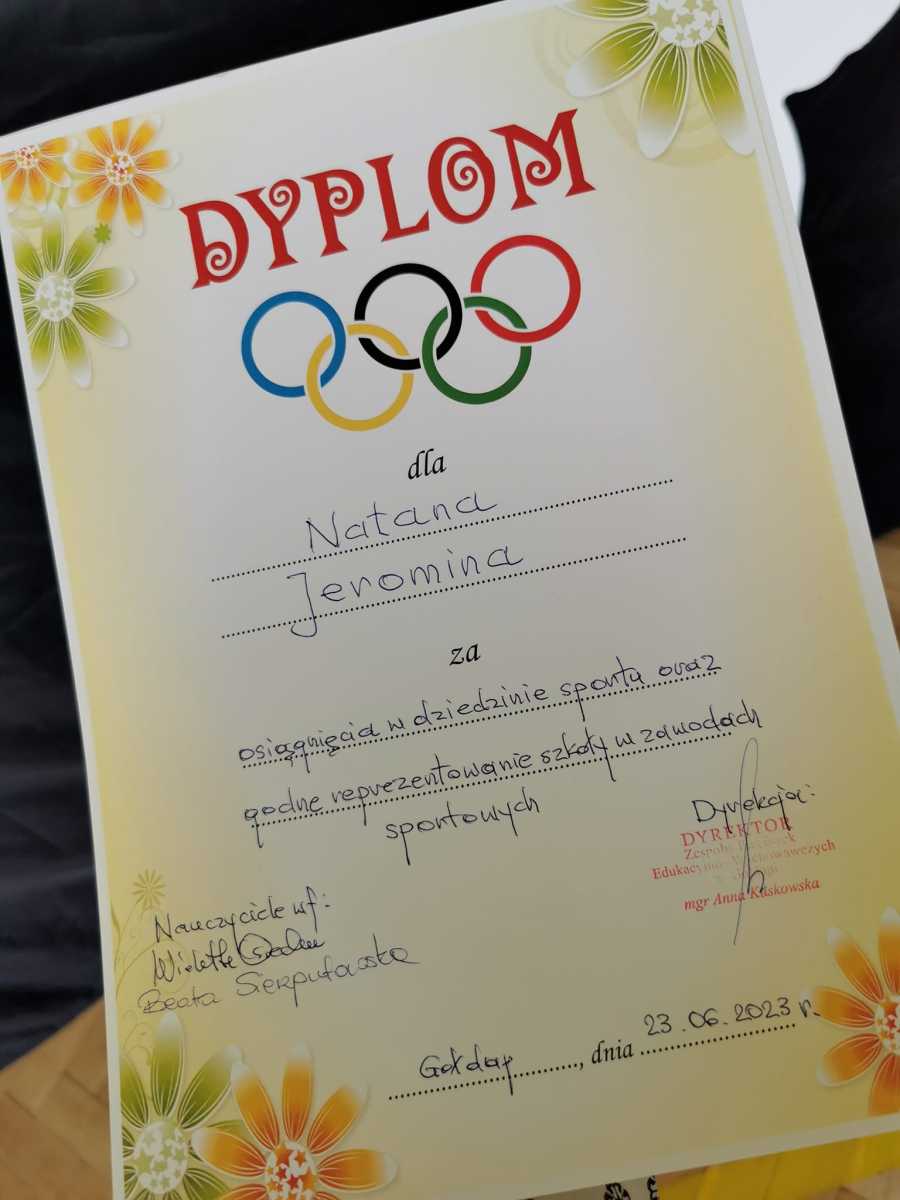 DYPLOM
dla
Natana
Jeromina
za
osiągnięcia w dziedzinie sportu oraz
godne reprezentowanie szkoły w zawodach
sportowych
Dyrekcja:
DYREKTOR
Zespołu Placówek
Edukacyjno-Wychowawczych
mgr Anna Kaskowska
Nauczyciele wf:
Wioletta
Beata Sierputowska
Gołdap, dnia 23.06.2023 r.